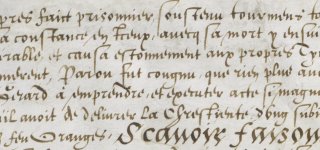 pres faict prisonnier, soustenu tourmens to
a constance en iceux, avecq sa mort y ensui
rable, et causa estonnement aux propres Ty
merent, Par ou fut cougnu que rien plus avo
Gerard à emprendre et executer acte si magn
il avoit de delivrer la Chrestienté, d'ung subi
feu Oranges, Scavoir faison